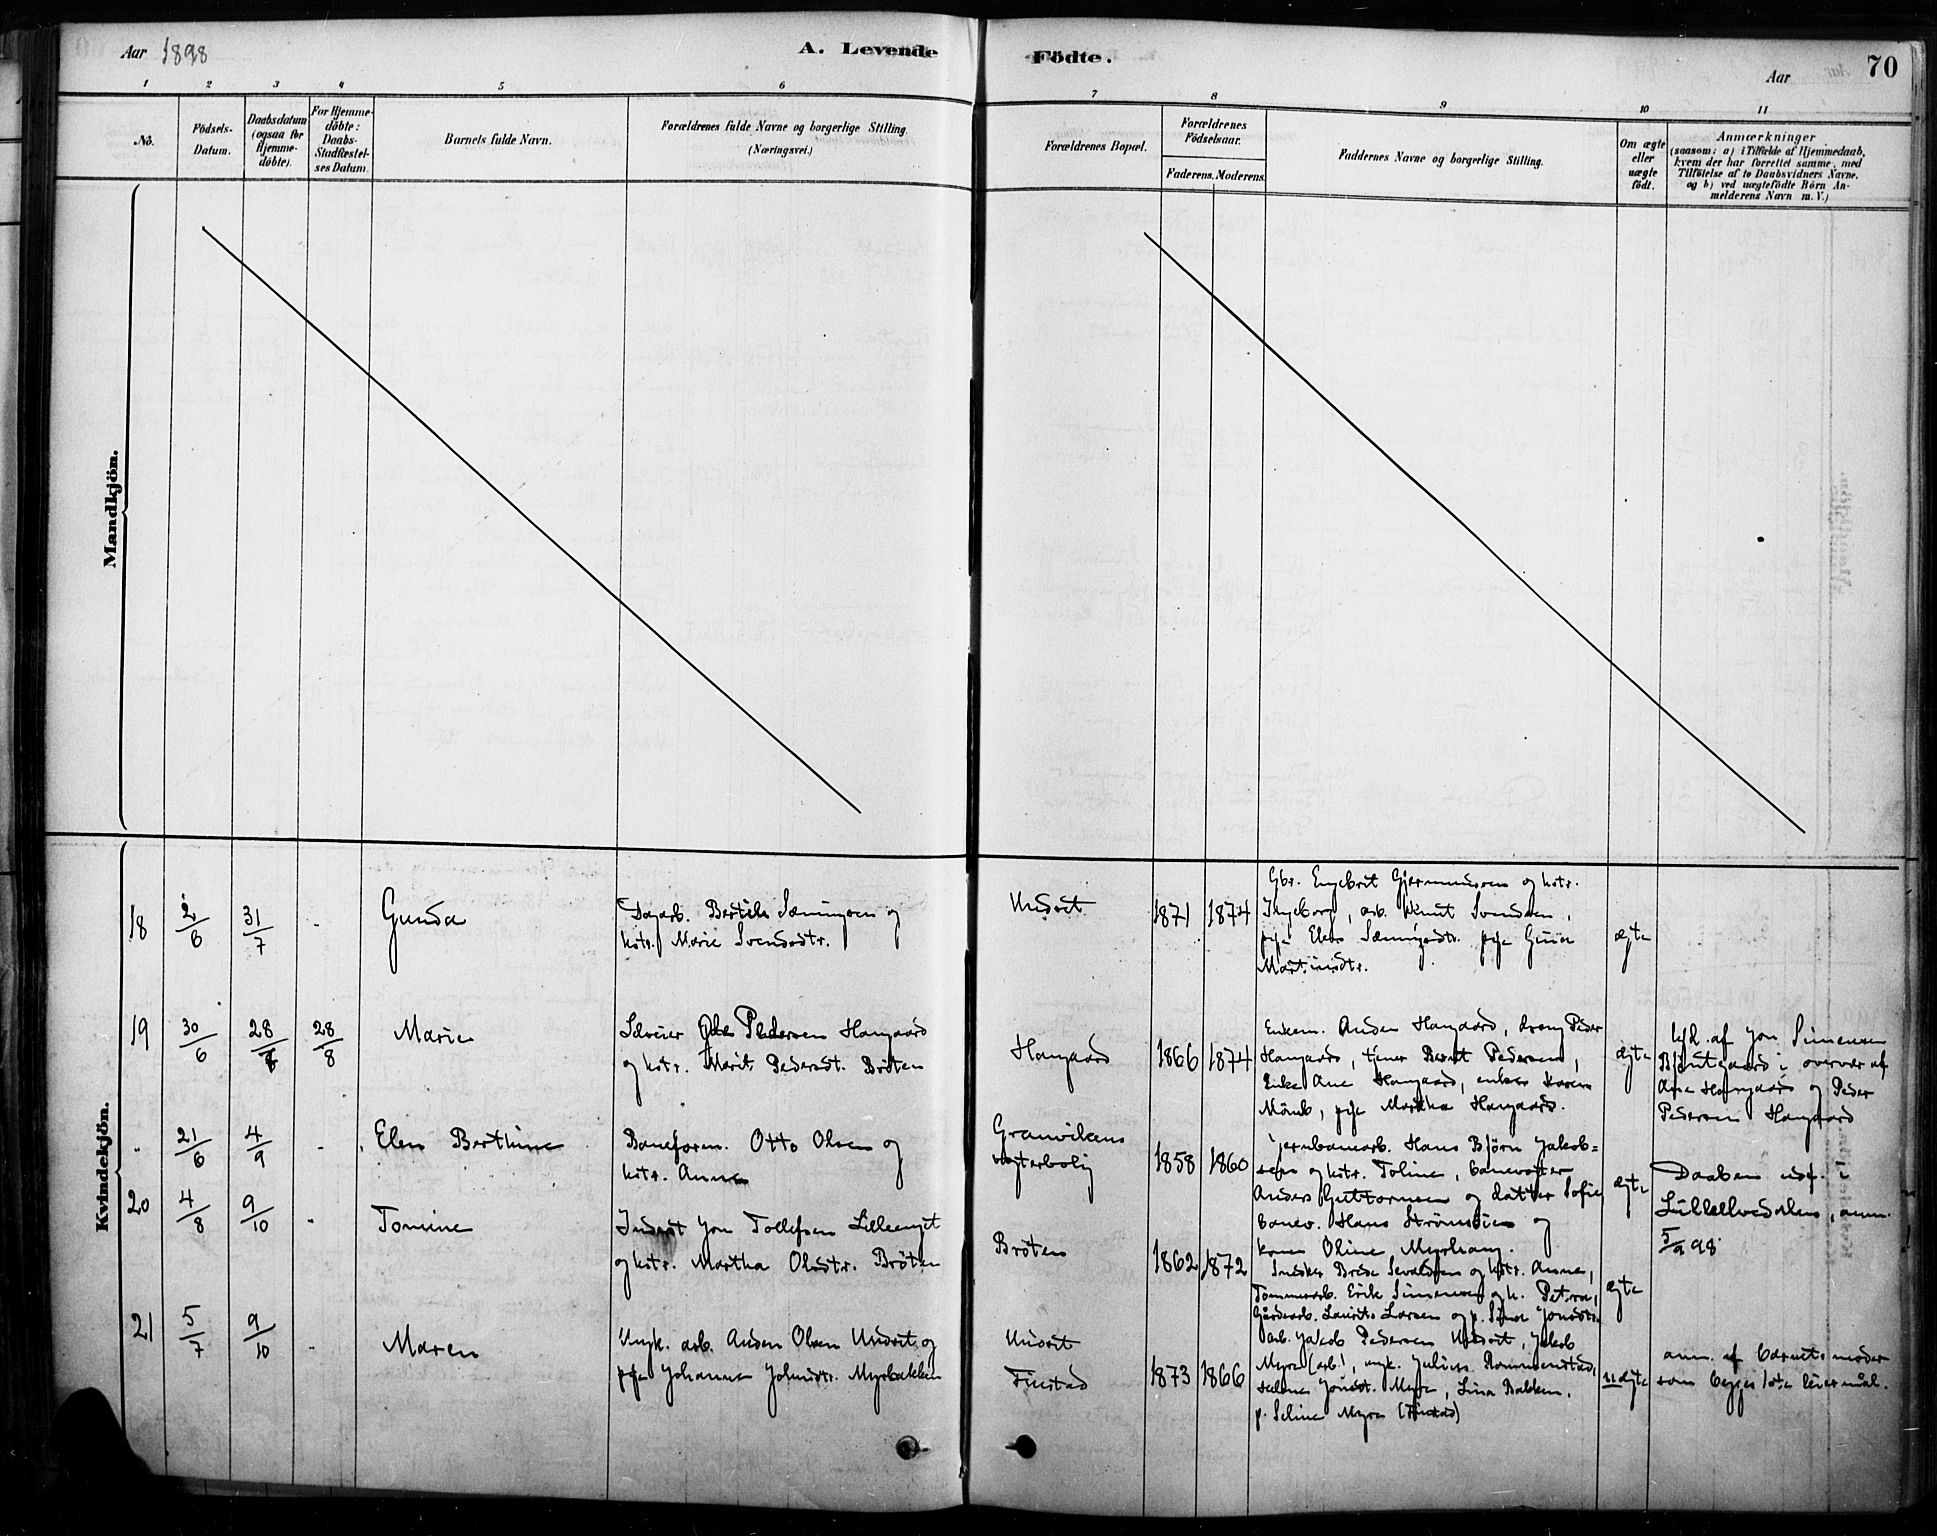 Aar 1898
A. Levende Födte.
Aar
70
1 2 3 4 5 6 7 8 9 10 11
No.
Födsels-Datum.
Daabsdatum (ogsaa for Hjemme-döbte).
For Hjemme-döbte: Daabs-Stadfæstel-ses Datum.
Barnets fulde Navn.
Forældrenes fulde Navne og borgerlige Stilling. (Næringsvei.)
Forældrenes Bopæl.
Forældrenes Födselsaar.
Faderens. Moderens.
Faddernes Navne og borgerlige Stilling.
Om ægte eller uægte födt.
Anmærkninger
(saasom: a) i Tilfælde af Hjemmedaab,
hvem der har forrettet samme, med
Tilföielse af to Daabsvidners Navne.
og b) ved uægtefödte Börn An-
melderens Navn m. V.)
Mandkjön.
Kvindekjön.
18 2/6 31/7 - Gunda
Dagarb. Bertil Sæmingsen og
kstr. Marie Svendsdtr.
Undset 1871 1874
Gbr. Engebrit Gjermundsen og kstr.
Ingeborg, arb. Knut Svendsen,
pige Elen Sæmingsdtr. pige Gina
Martinsdtr.
ægte
19 30/6 28/8 28/8 Marie
Selveier Ole Pedersen Haugaard
og kstr. Marit Pedersdt. Bröten
Haugaard 1866 1874
Enkem. Anders Haugaard, dreng Peder
Haugaard, tjener Bernt Pedersen,
Enke Ane Haugaard, enke Karen
Mömb, pige Martha Haugaard.
ægte
hjd. af Jon Simensen
i overvær af
Ane Haugaard og Peder
Pedersen Haugaard
" 21/6 4/9 - Elen Berthine
Baneform. Otto Olsen og
kstr. Anna
Granvikens
vogterbolig
1858 1860
Jernbanearb. Hans Björn Jakob-
sen og kstr. Toline, banevogter
Anders Guttormsen og datter Sofie
banev. Hans Strömsöien og
kone Oline Myrhaug.
ægte
Daaben udf. i
Lilleelvedalen, anm.
5/9 98
20 4/8 9/10 - Tomine
Inderst Jon Tollefsen Lilleenget
og kstr. Martha Olsdtr. Bröten
Bröten 1862 1872
Snedker Brede Sevaldsen og kstr. Anne,
Tömmerarb. Erik Simensen og h. Petra,
Gårdsarb. Laurits Larsen og p. Sina Jonsdtr.
ægte
21 5/7 9/10 - Maren
Ungk. arb. Anders Olsen Undset og
pige Johanne Johnsdtr. Myrbakken
Undset
Finstad
1873 1866
arb. Jakob Pedersen Undset, Jakob
Myre (arb.), ungk. Julius Rommenstad,
Selma Jonsdt. Myre, Lina Bakken,
p. Seline Myre (Finstad)
uægte
anm. af barnets moder
som begges 1ste leiermål.